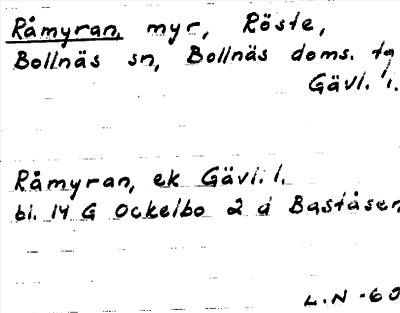 Råmyran, myr, Röste,
Bollnäs sn, Bollnäs doms. tg
Gävl. l.
Råmyran, ek Gävl. l.
bl. 14 G Ockelbo 2 d Baståsen
L.N -60